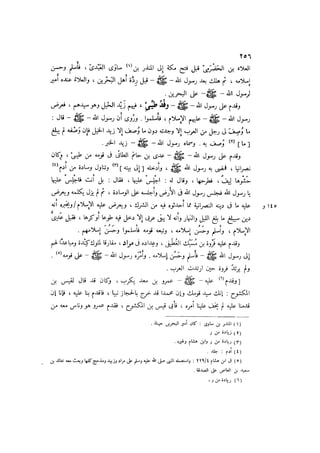 ٢٥٦
العلاء بن الحَضْرَمىّ قبل فتح مكة إلى المنذر بن (١) ساوَى العَبْدىّ ، فأسلم وحسن
إسلامه ، ثم هلك بعد رسول الله – ﷺ – قبل رِدَّة أهل البَحْرَين ، والعلاءُ عنده أمير
لرسول الله – ﷺ – على البحرين .
وقدم على رسول الله – ﷺ – وَفْدُ طَيِّئ ، فيهم زَيْد الخَيل وهو سيدهم ، فعرض
رسول الله – ﷺ – عليهم الإسلام ، فأسلموا . ورُوى أن رسول الله – ﷺ – قال :
ما وُصِفَ لى رجل من العرب إلا وجدته دون ما وُصف إلا زيد الخيل فإن وَصْفه لم يبلغ
[ ما ] (٢) وُصف به . وسماه رسول الله – ﷺ – زيد الخير .
وقدم على رسول الله – ﷺ – عدى بن حاتم الطائىّ فى قومه من طيئ ، وكان
نصرانيا ، فمضى به رسول الله ﷺ ، وأدخله [ إلى بيته ] (٣) وتناول وسادة من أَدَم (٤)
حَشْوها لِيفٌ ، فطرحها ، وقال له : اجْلِسْ عليها ، فقال : بل أنت فاجْلِسْ عليها
يا رسول الله فجلس رسول الله فى الأرض وأجلسه على الوسادة ، ثم لم يزل يكلمه ويعرض
عليه ما فى دينه النصرانية مما أحدثوه فيه من الشرك ، ويعرض عليه الإسلام / ويخبره أنه
١٤٥ و
دين سيبلغ ما بلغ الليل والنهار وأنه لا يبقى عربى إلا دخل فيه طوعا أو كرها ، فقبل عَدِىٌّ
الإسلام ، وأسلم وحَسُن إسلامه ، وتبعه قومه فأسلموا وحَسُن إسلامهم .
وقدم عليه فَرْوة بن مُسَيْك الغُطَيْفى ، وعداده فى مراد ، مفارقا لملوك كِنْدة ومباعدا لهم
إلى رسول الله – ﷺ – فأسلم وحَسُن إسلامه . وأَمَّره رسول الله – ﷺ – على قومه (٥) .
ولم يرتدّ فروة حين ارتدت العرب .
[ وقدم (٦) عليه – ﷺ – عمرو بن معد يكرب ، وكان قد قال لقيس بن
المكشوح : إنك سيد قومك وإن محمدا قد خرج بالحجاز نبيا ، فاقدم بنا عليه ، فإنا إن
قدمنا عليه لم يَخْفَ علينا أمره ، فأبى قيس بن المكشوح ، فقدم عمرو هو وناس معه من
(١) المنذر بن ساوى : كان أمير البحرين حينئذ .
(٢) زيادة من ر
(٣) زيادة من ر وابن هشام وغيره .
(٤) أدم : جلد .
(٥) ابن هشام ٤ / ٢٢٩ : واستعمله النبى صلى الله عليه وسلم على مراد وزبيد ومذحج كلها وبعث معه خالد بن
سعيد بن العاص على الصدقة .
(٦) زيادة من ر .